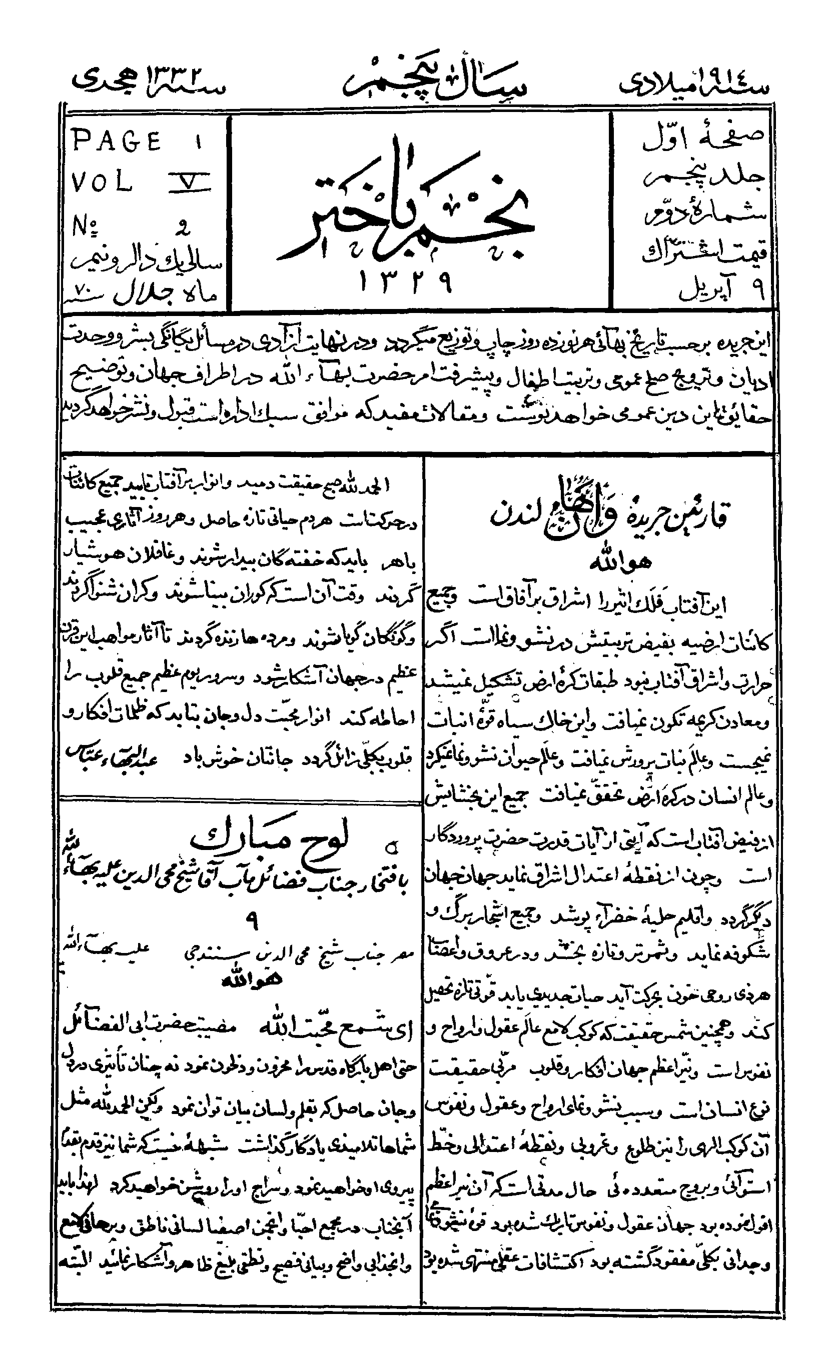 سنه ۱۹۱٤ میلادی
سال پنجم
سنه ۱۳۳۲ هجری
صفحهٔ اوّل
جلد پنجم
شمارهٔ دوّم
قیمت اشتراك
۹ آپریل
نجم باختر
۱۳۲۹
PAGE 1
VOL V
Nº 2
سالی یك دالر و نیم
ماه جلال سنه ۷۰
این جریده بر حسب تاریخ بهائی هر نوزده روز چاپ و توزیع میگردد و در نهایت آزادی در مسائل یگانگی بشر و وحدت
ادیان و ترویج صلح عمومی و تربیت اطفال و پیشرفت امر حضرت بهاء الله در اطراف جهان و توضیح
حقائق این دین عمومی خواهد نوشت و مقالات مفیده که موافق سبك اداره است قبول و نشر خواهد گردید
قارئین جریدهٔ لندن
هوالله
این آفتاب فَلَك اثیر را اشراق بر آفاق است و جمیع
کائنات ارضیه بفیض تربیتش در نشو و نما است اگر
حرارت و اشراق آفتاب نبود طبقات کرهٔ ارض تشکیل نمیشد
و معادن کریمه تکون نمییافت و این خاك سیاه قوّهٔ انبات
نمیجست و عالم نبات پرورش نمییافت و عالم حیوان نشو و نما نمیکرد
و عالم انسان در کرهٔ ارض تحقق نمییافت جمیع این بخشایش
از فیض آفتاب است که آیتی از آیات قدرت حضرت پروردگار
است و چون از نقطهٔ اعتدال اشراق نماید جهان جهان
دیگر گردد و اقلیم حلیهٔ خضراء پوشد و جمیع اشجار برگ و
شکوفه نماید و ثمر تر و تازه بخشد و در عروق و اعضاء
هر ذی روحی خون بحرکت آید حیات جدیدی یابد قوّتی تازه تحصیل
کند و همچنین شمس حقیقت که کوکب لامع عالم عقول و ارواح و
نفوس است و نیّر اعظم جهان افکار و قلوب مربّی حقیقت
نوع انسان است و سبب نشو و نمای ارواح و عقول و نفوس
آن کوکب الهی را نیز طلوع و غروبی و نقطهٔ اعتدالی و خط
استوائی و بروج متعدده ئی حال مدتی است که آن نیر اعظم
افول نموده بود جهان عقول و نفوس تاریك شده بود قوهٔ نشو و نما
وجدانی بکلّی مفقود گشته بود اکتشافات عقلی منتهی شده بود
الحمد لله صبح حقیقت دمید و انوار بر آفتاب تابید جمیع کائنات
در حرکت است هر دم حیاتی تازه حاصل و هر روز آثاری عجیب
باهر باید که خفته گان بیدار شوند و غافلان هوشیار
گردند وقت آن است که کوران بینا شوند و کران شنوا گردند
و گونگان گویا شوند و مرده ها زنده گردند تا آثار مواهب این قرن
عظیم در جهان آشکار شود و سرور یوم عظیم جمیع قلوب را
احاطه کند انوار محبّت دل و جان بتابد که ظلمات افکار و
قلوب بکلّی زائل گردد جانتان خوش باد عبدالبهاء عبّاس
لوح مبارك
بافتخار جناب فضائل مآب آقا شیخ محی الدین علیه بهاء الله
۹
مصر جناب شیخ محی الدین سنندجی علیه بهاء الله
هوالله
ای شمع محبّت الله مصیبت حضرت ابی الفضائل
حتی اهل بارگاه قدس را محزون و دلخون نمود نه چنان تأثیری در دل
و جان حاصل که بقلم و لسان بیان توان نمود ولکن الحمد لله مثل
شماها تلامیذی یادگار گذاشت شبههٔ نیست که شما نیز قدم بقدم
پیروی او خواهید نمود و سراج او را روشن خواهید کرد لهذا باید
آنجناب در مجمع احبا و انجمن اصفیا لسانی ناطق و برهانی لامع
و انجذابی واضح و بیانی فصیح و نطقی بلیغ ظاهر و آشکار نمائید البتّه